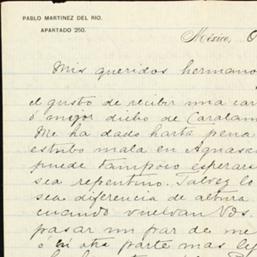 PABLO MARTINEZ DEL RIO.
APARTADO 250.
México,
Mis queridos hermano
el gusto de recibir una car
ó mejor dicho de Caralam
Me ha dado harta pena
estubo mala en Aguasca
puede tampoco esperars
sea repentino. Talvez lo
sea diferencia de altura
cuando vuelvan Vds.
pasar un par de me
ó en otra parte mas le